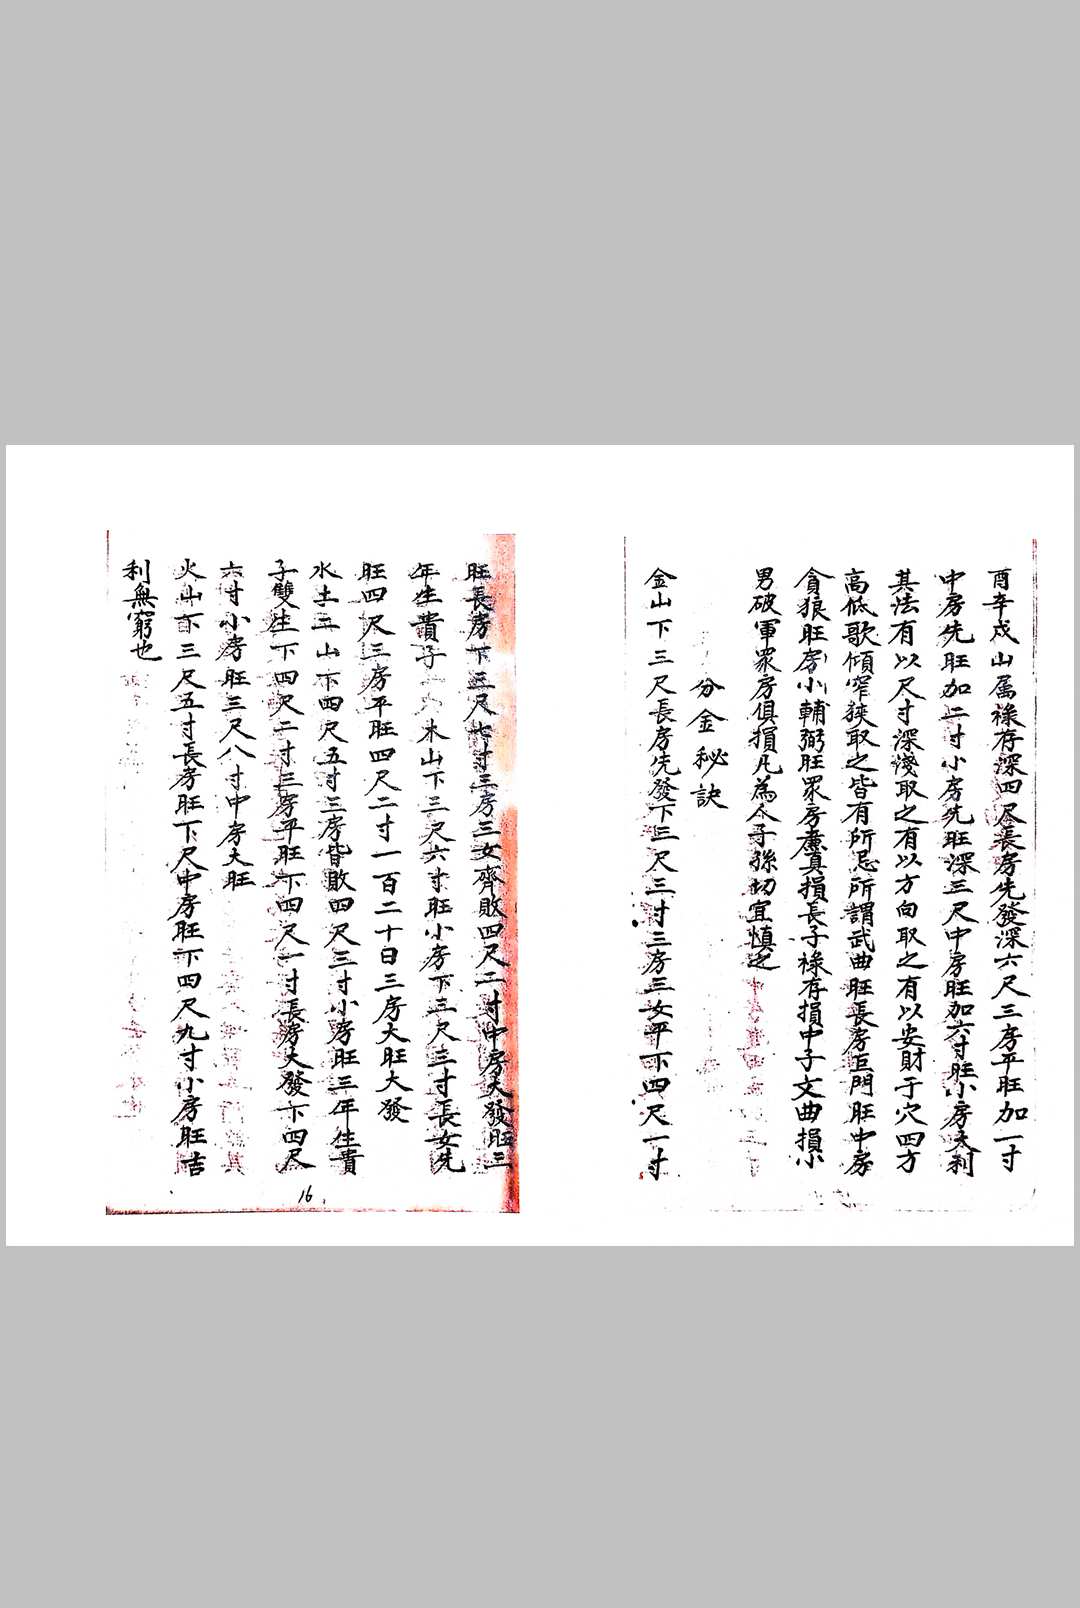 酉辛戍山属祿存深四尽長房先發深六尺三房平旺加一寸
中房先旺加二寸小房先旺深三尺中房旺加六寸旺小房大利
其法有以尺寸深淺取之有以方向取之有以安財于穴四方
高低歌傾窄狹取之皆有所忌所謂武曲旺長房巨門旺中房
貪狼旺房小輔弼旺眾房亷真損長子祿存損中子文曲損小
男破軍眾房俱損凡為人子孫切宜慎之
分金秘訣
金山下三尺長房先發下三尺三寸三房三女平下四尺一寸
旺長房下三尺七寸三房三女齊敗四尺二寸中房大發旺三
年生貴子木山下三尺六寸旺小房下三尺三寸長女先
旺四尺三房平旺四尺二寸一百二十日三房大旺大發
水土二山下四尺五寸三房皆敗四尺三寸小房旺三年生貴
子雙生下四尺二寸三房平旺下四尺一寸長房大發下四尺
六寸小房旺三尺八寸中房大旺
火山下三尺五寸長房旺下尺中房旺下四尺九寸小房旺吉
利無窮也
16